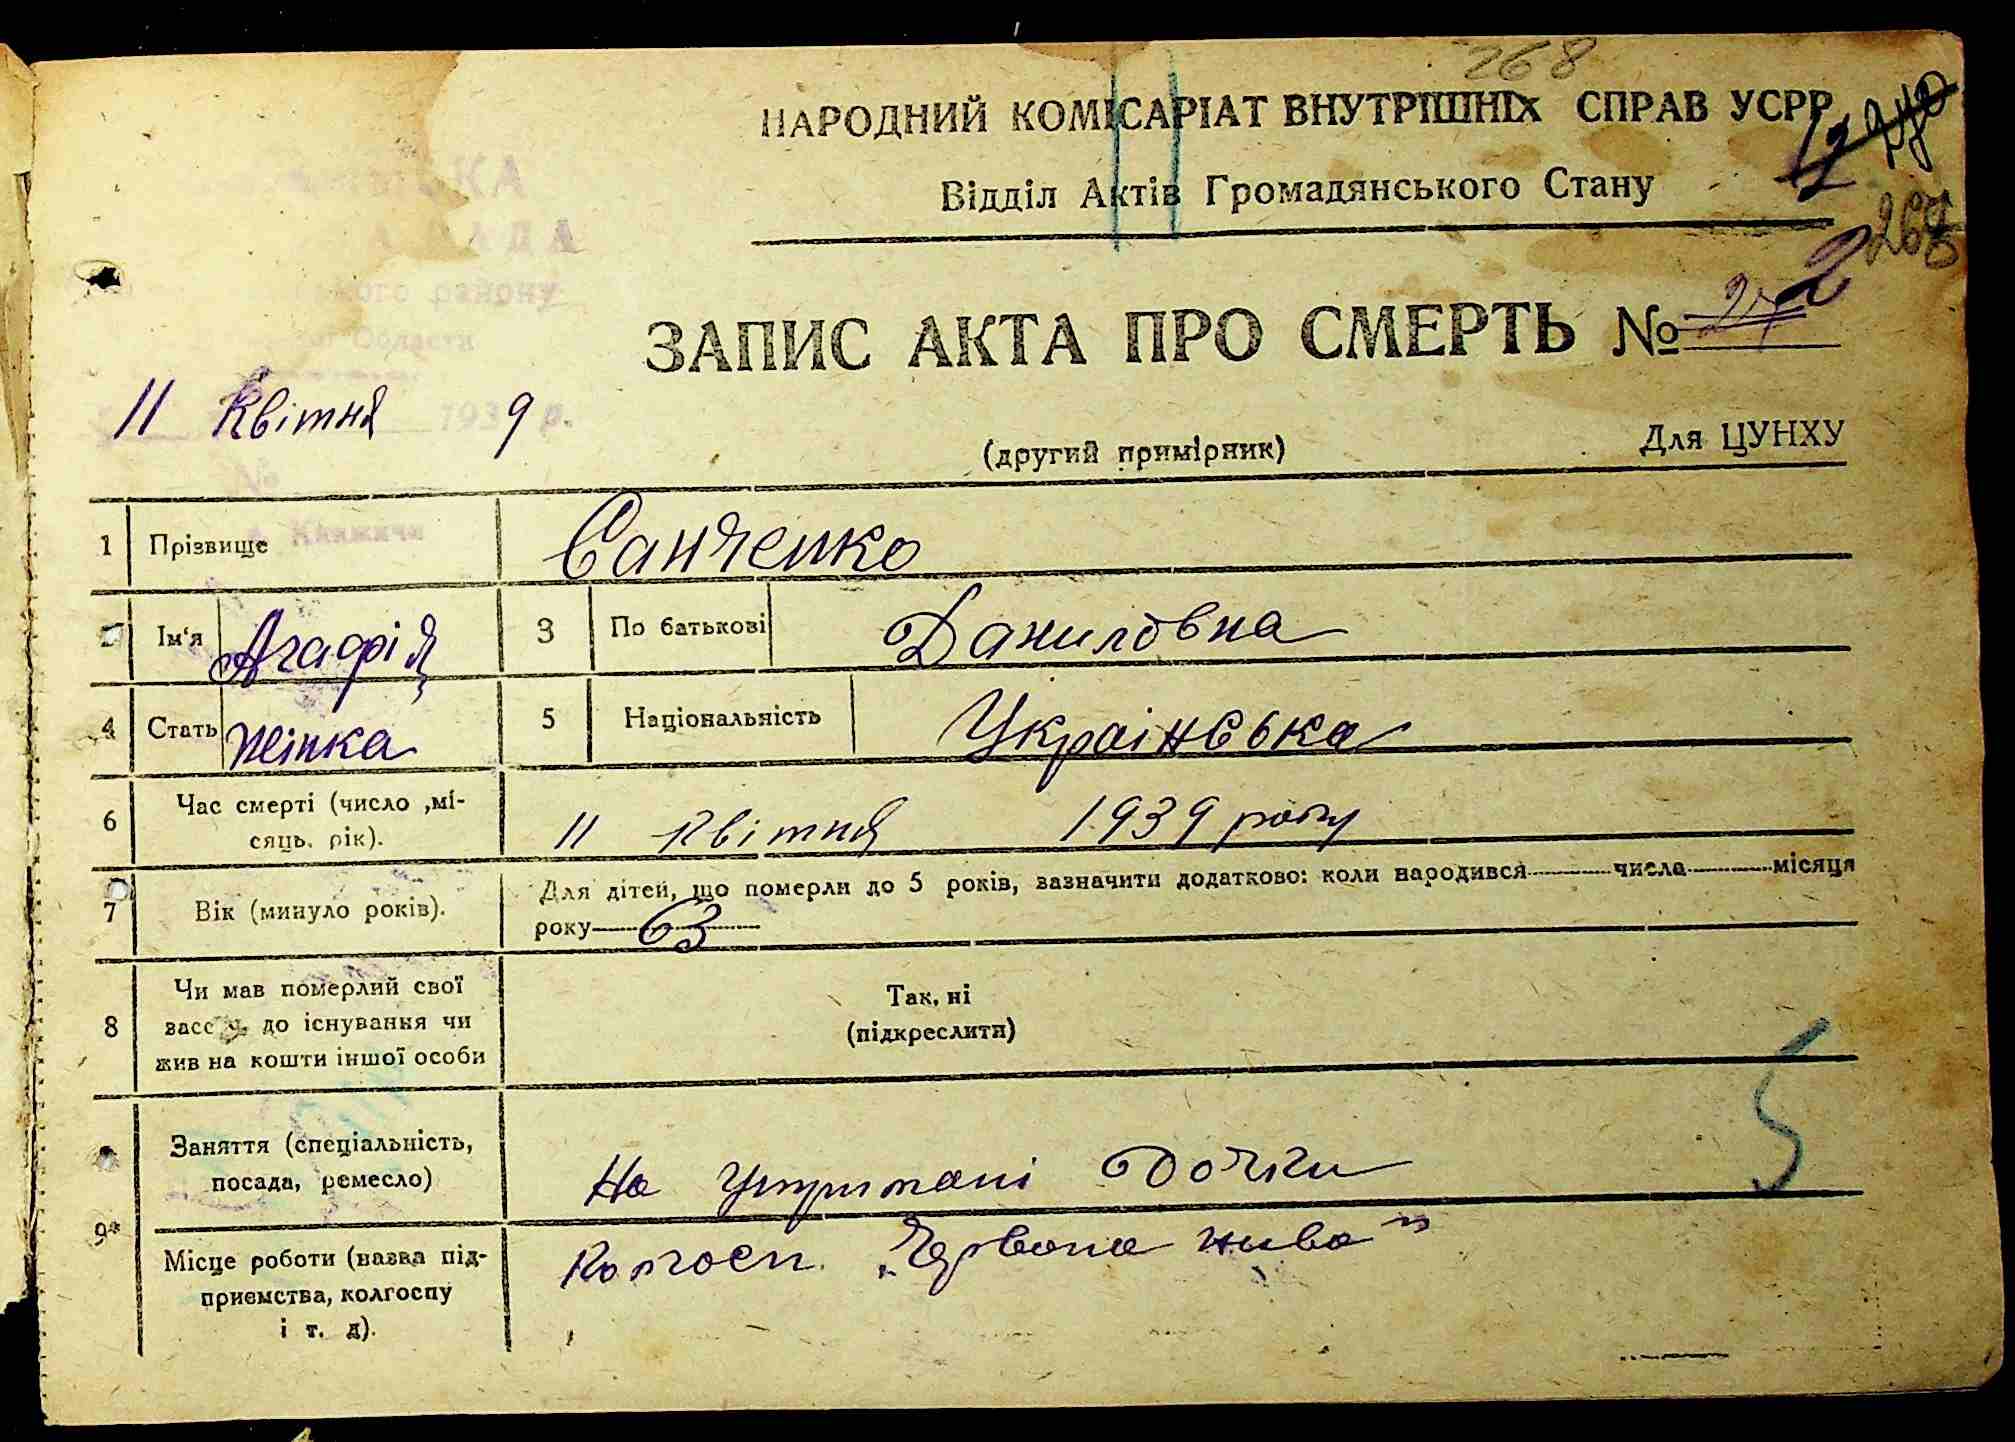 268
НАРОДНИЙ КОМІСАРІАТ ВНУТРІШНІХ СПРАВ УСРР
Відділ Актів Громадянського Стану
268
ЗАПИС АКТА ПРО СМЕРТЬ № 2
району
Області
11 Квітня 1939 р.
№
(другий примірник)
Для ЦУНХУ
Княжичи
1 Прізвище Санченко
2 Ім'я Агафія 3 По батькові Даниловна
4 Стать Жінка 5 Національність Українська
6 Час смерті (число ,мі-
сяць. рік).
11 Квітня 1939 року
7 Вік (минуло років).
Для дітей, що померли до 5 років, зазначити додатково: коли народився числа місяця
року 63
8 Чи мав померлий свої
до існування чи
жив на кошти іншої особи
Так, ні
(підкреслити)
Заняття (спеціальність,
посада, ремесло)
На утримані дочки
9* Місце роботи (назва під-
приємства, колгоспу
і т. д).
Колгосп. „Червона нива"